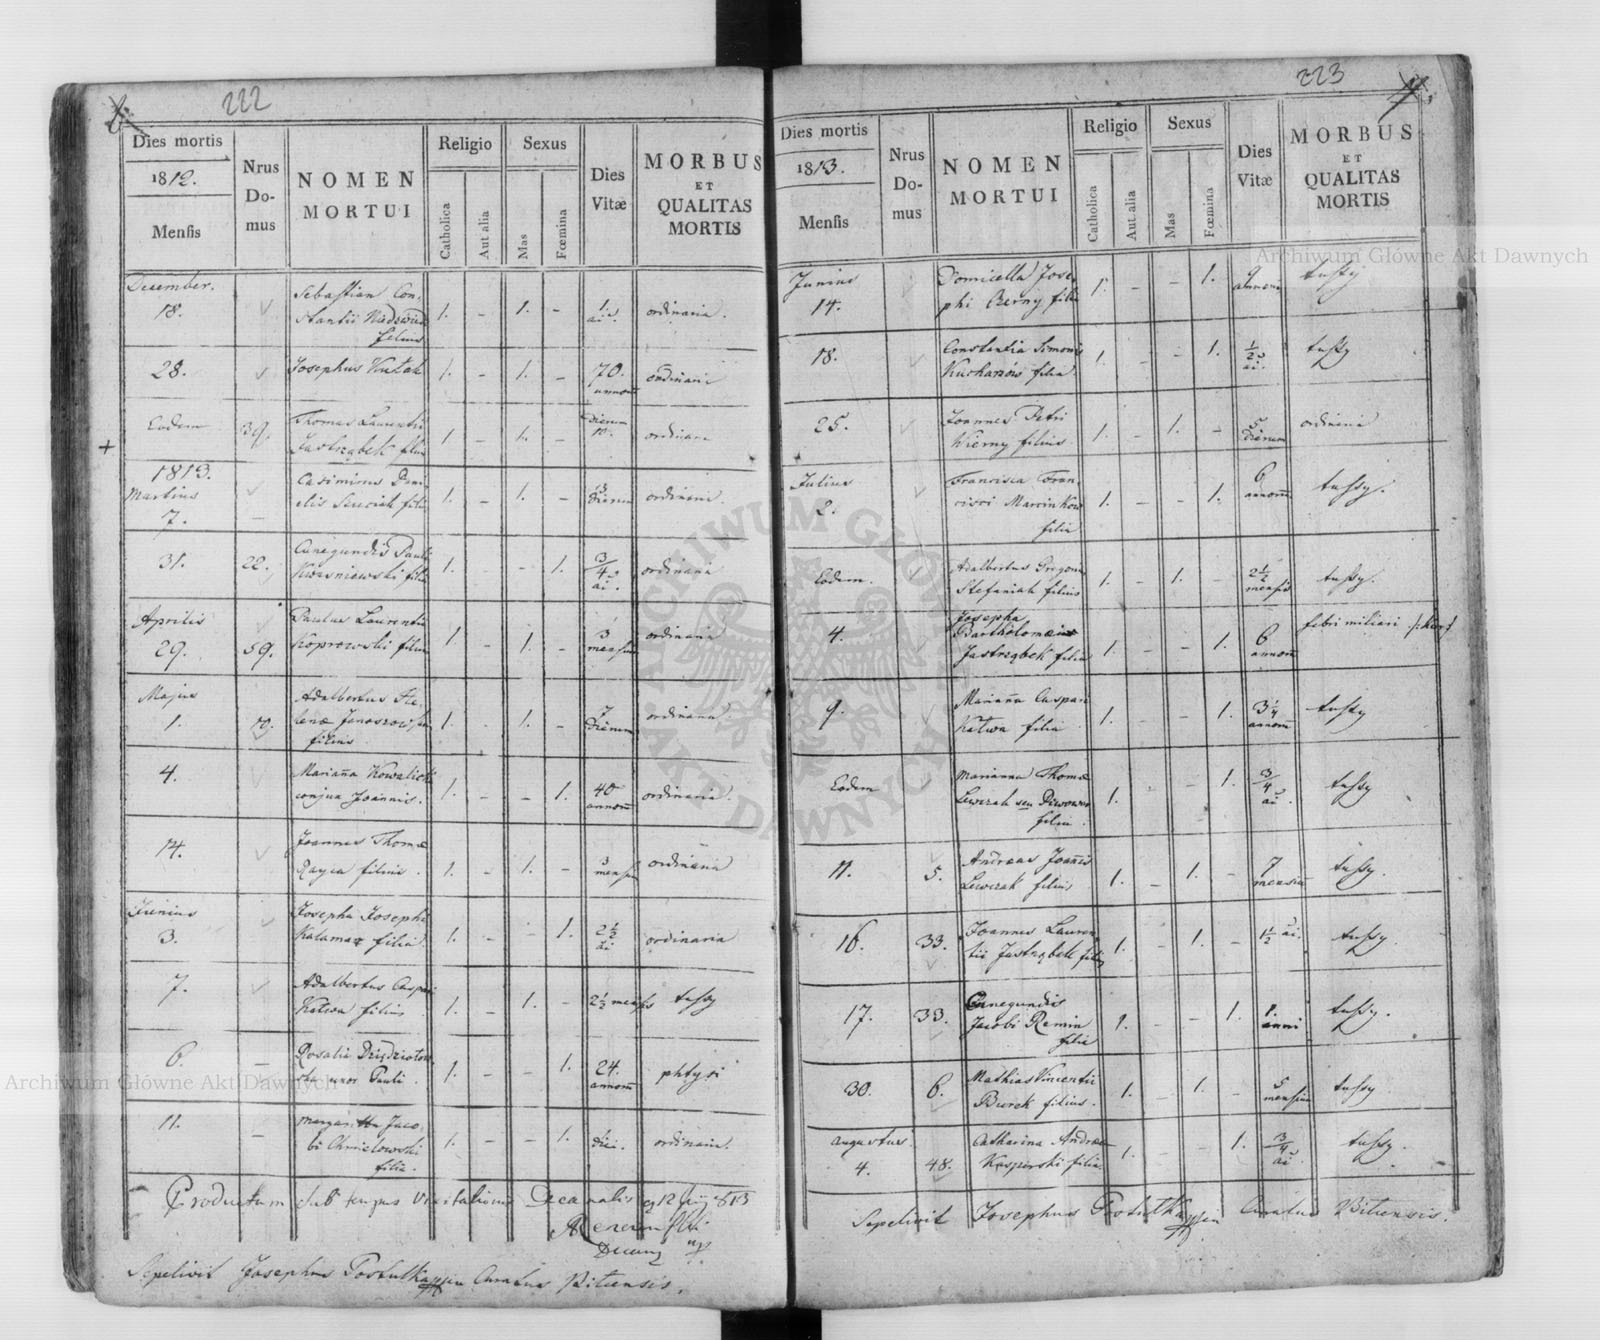 222
Dies mortis
1812.
Mensis
Nrus
Do-
mus
NOMEN
MORTUI
Religio
Catholica
Aut alia
Sexus
Mas
Fœmina
Dies
Vitæ
MORBUS
ET
QUALITAS
MORTIS
December.
18.
Sebastian Con-
stantii
filius
1. - 1. -
1.
ordinaria.
28.
Josephus
1. - 1. -
70.
annorum
ordinaria
Eodem
39.
Thomas Laurentii
Jastrząbek filius
1. - 1. -
Dierum
10.
ordinaria
1813.
Martius
7.
Casimirus Dani-
elis filius
1. - 1. -
3
Dierum
ordinaria
31.
22.
Cunegundis Pauli
filia
1. 1.
3/4
ordinaria
Aprilis
29.
59.
Paulus Laurentii
Koprowski filius
1. - 1. -
3
mensium
ordinaria
Majus
1.
10.
Adalbertus He-
lenæ
filius
1. - 1. -
7
Dierum
ordinaria
4.
Marianna
conjux Joannis.
1. - - 1.
40
annorum
ordinaria.
14.
Joannes Thomæ
Rayca filius
1. - 1. -
3
mensium
ordinaria
Junius
3.
Josepha Josephi
filia
1. - - 1.
2 1/2
ordinaria
7.
Adalbertus Caspari
Katwa filius
1. - 1. -
2 1/2 mensis
tussy
6
Rosalia
uxor Pauli.
1. - - 1.
24.
annorum
phtysi
11.
Margaritta Jaco-
bi Chmielowski
filia
1. - - 1.
1
diei.
ordinaria.
Productum sub tempus Visitationis Decanalis 12 1813
Sepelivit Josephus Curatus
223
Dies mortis
1813.
Mensis
Nrus
Do-
mus
NOMEN
MORTUI
Religio
Catholica
Aut alia
Sexus
Mas
Fœmina
Dies
Vitæ
MORBUS
ET
QUALITAS
MORTIS
Junius
14.
Domicella Jose-
phi Czerny filia
1. - - 1.
9
tussy
18.
Constantia Simonis
Kucharzów filia
1. - - 1.
1/2
tussy
25.
Joannes Petri
Wierny filius
1. - 1. -
5
Dierum
ordinaria
Julius
2.
Francisca Fran-
cisci
filia
1. - - 1.
6
annorum
tussy.
Eodem.
Adalbertus Gregorii
Stefaniak filius
1. - 1. -
2 1/2
mensis
tussy.
4.
Josepha
Bartholomæi
Jastrząbek filia
1. - - 1.
6
annorum
febri miliari
9.
Marianna Caspari
Katwa filia
1. - - 1.
3 1/4
annorum
tussy
Eodem
Marianna Thomæ
Lewczak seu
filia.
1. - 1.
3/4
tussy
11.
5.
Andreas Joannis
Lewczak filius
1. - 1. -
7
mensium
tussy.
16.
33.
Joannes Lauren-
tii Jastrząbek filius
1. - 1. -
1 1/2
tussy.
17.
33.
Cunegundis
Jacobi Remin
filia
1. - - 1.
1.
anni
tussy.
30.
6.
Mathias Vincentii
Burek filius.
1. - 1. -
5
mensium
tussy
Augustus.
4.
48.
Catharina Andreæ
Kasperski filia
1. - - 1.
3/4
tussy.
Sepelivit Josephus Curatus
Archiwum Główne Akt Dawnych
Archiwum Główne Akt Dawnych
ARCHIWUM GŁÓWNE AKT DAWNYCH